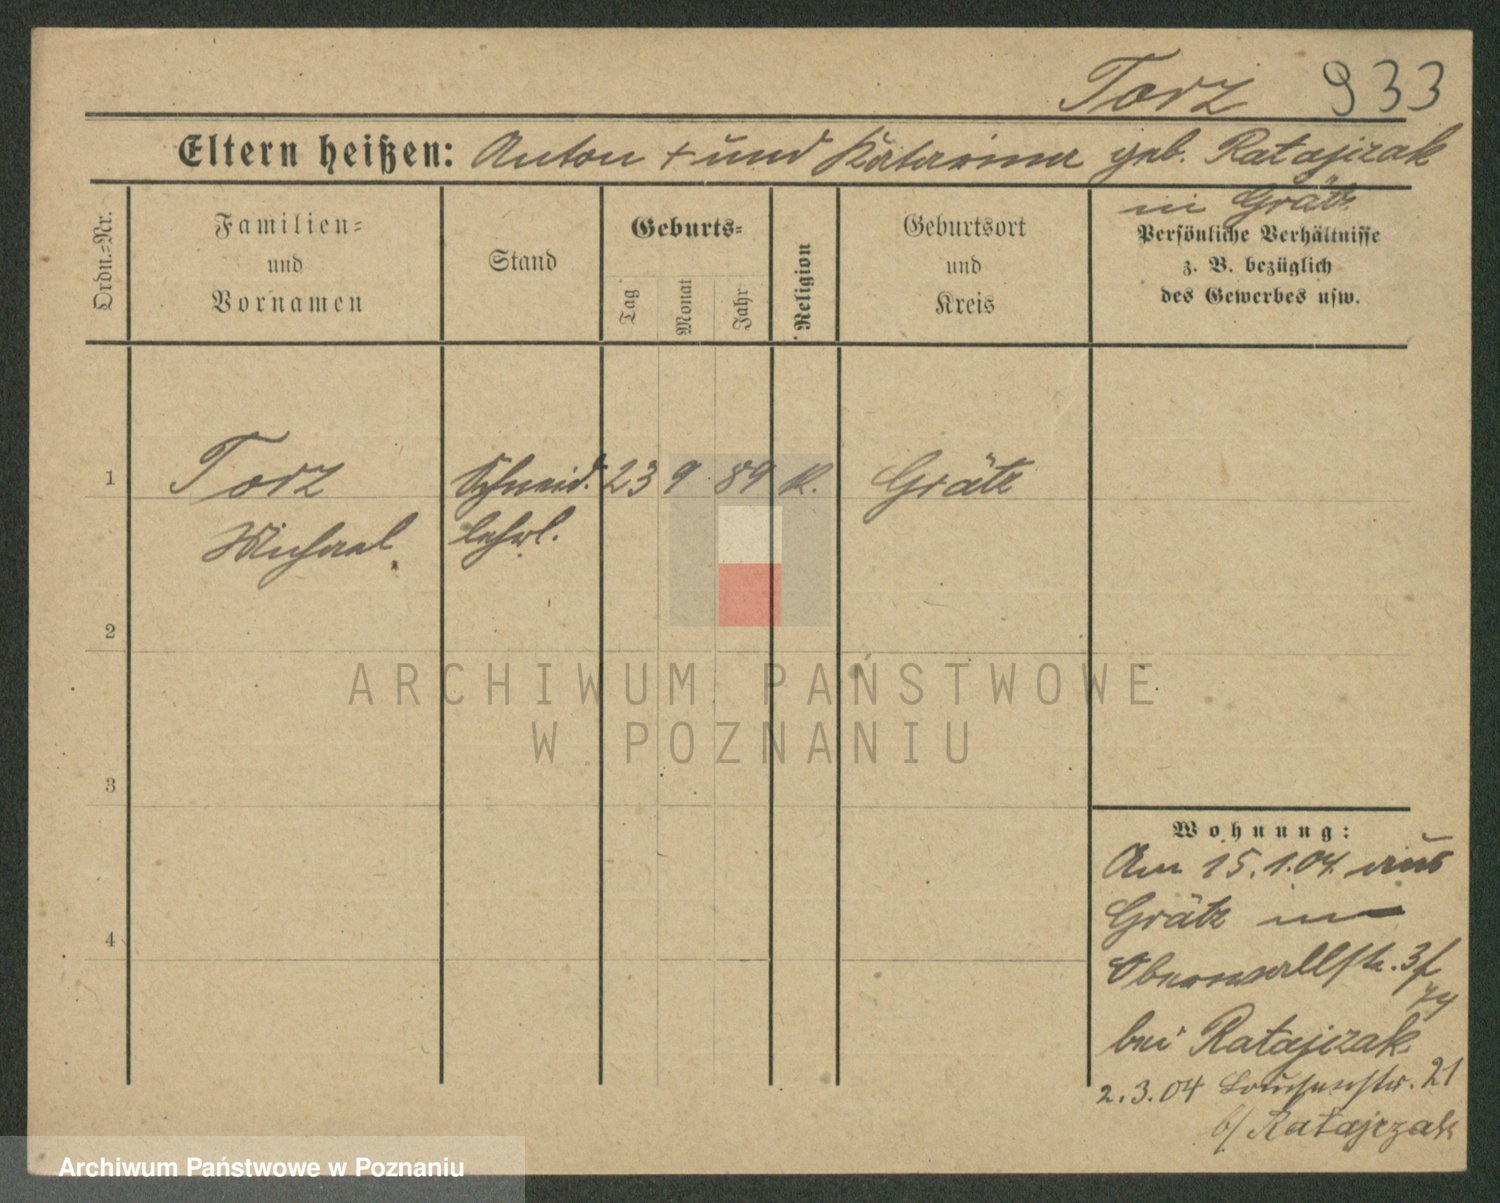 Torz 933
Eltern heißen: Anton + und Katarina geb. Ratajczak
in Grätz
Ordn.=Nr.
Familien=
und
Vornamen
Stand
Geburts=
Tag
Monat
Jahr
Religion
Geburtsort
und
Kreis
Persönliche Verhältnisse
z. B. bezüglich
des Gewerbes usw.
1 Torz Schneid. 23 9 89 K. Grätz
Michael lehrl.
2
3
4
Wohnung:
Am 15.1.04 aus
Grätz in
Oberwallstr. 3f
bei Ratajczak
2.3.04 21
b/ Ratajczak
ARCHIWUM PAŃSTWOWE
W POZNANIU
Archiwum Państwowe w Poznaniu